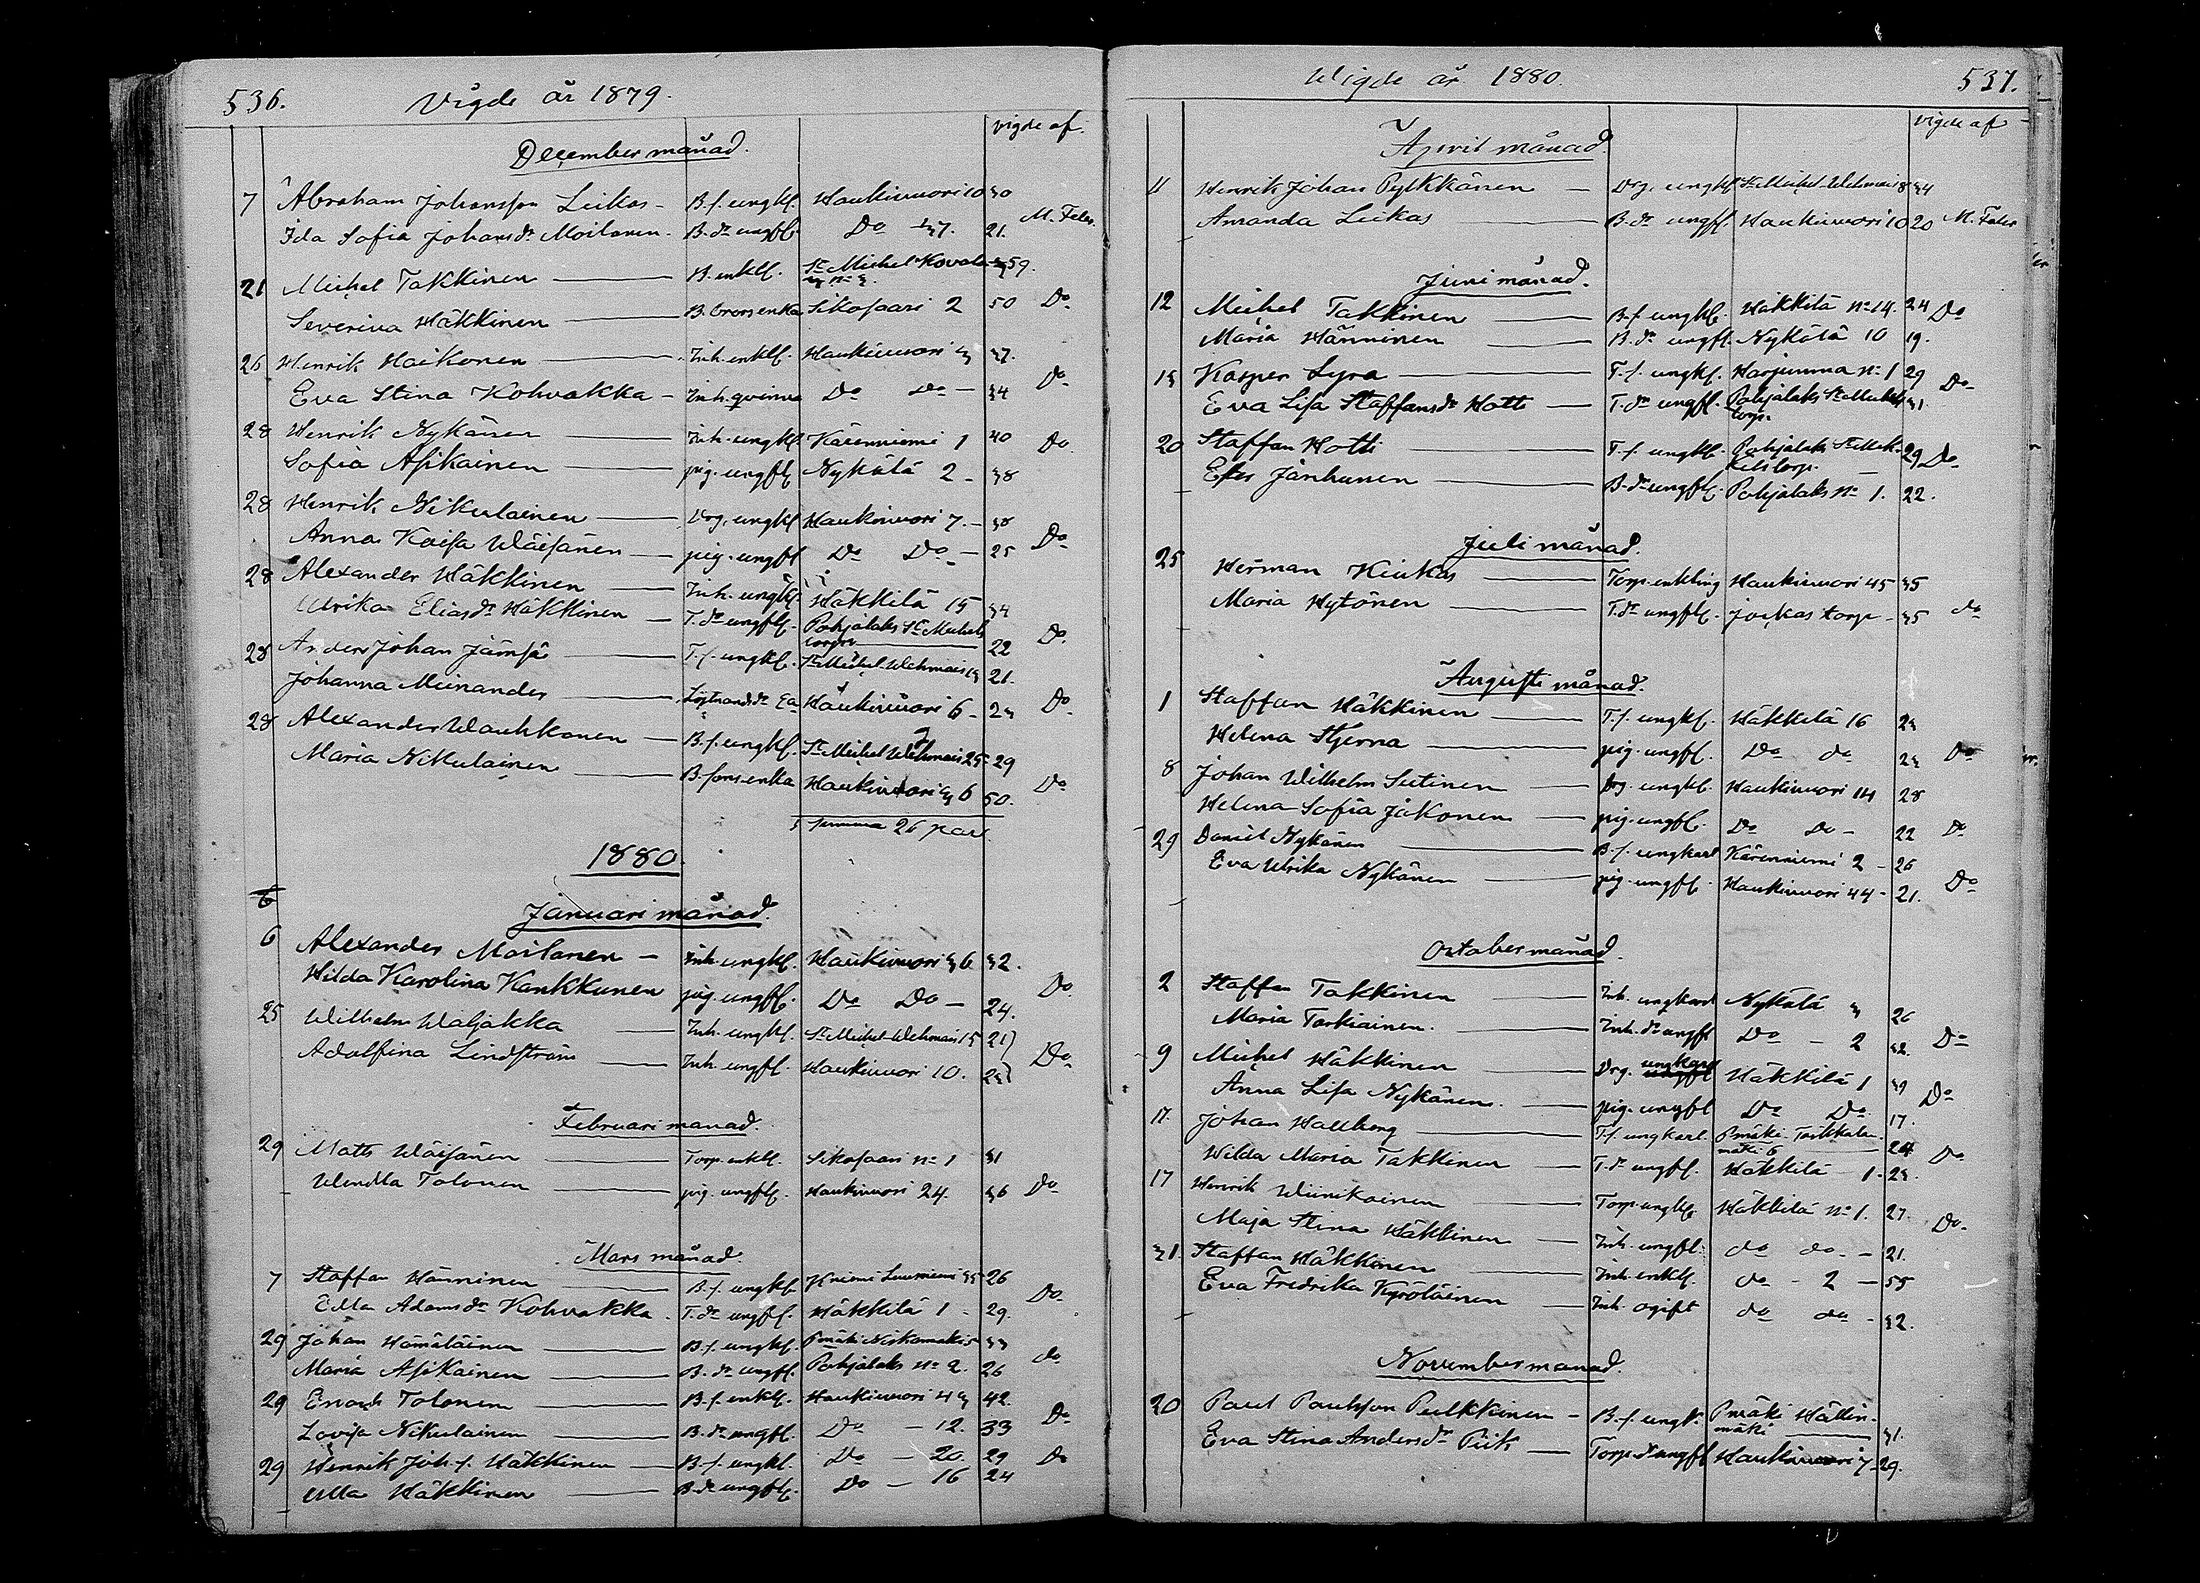 536. Vigde år 1879.
vigde af.
December månad.
7 Abraham Johansson Liikas - B.s. ungkl. Haukivuori 10 30
Ida Sofia Johansdr Moilanen - B.dr ungfl. Do 37. 21. M. Faler.
21 Michel Takkinen B. enkl. St Michel Kovala 59.
Severina Häkkinen B. brors enka Sikosaari 2 50 Do
26 Henrik Haikonen Inh. enkl. Haukivuori 3 37.
Eva Stina Kohvakka - Inh. qvinna Do Do - 34 Do
28 Henrik Nykänen Inh. ungkl. Kärenniemi 1 40 Do
Sofia Asikainen pig. ungfl. Nykälä 2 - 38
28 Henrik Nikulainen Drg. ungkl. Haukivuori 7. - 38
Anna Kaisa Wäisänen pig. ungfl Do Do - 25 Do
28 Alexander Häkkinen Inh. ungkl. Häkkilä 15 34
Ulrika Eliasdr Häkkinen T.dr ungfl. Pohjalaks St Michels torp 22 Do
28 Anders Johan Jämsä T.s. ungkl. St Michel Wehmais 13 21.
Johanna Meinander Haukivuori 6 - 23 Do
28 Alexander Waukkonen B.s. ungkl. St Michel Wehmais 25 29
Maria Nikulainen B. sons enka Haukivuori 36 50. Do
summa 26 par
1880.
Januari månad.
6 Alexander Moilanen - Inh. ungkl. Haukivuori 36 32.
Hilda Karolina Kankkunen pig. ungfl. Do Do - 24. Do
25 Wilhelm Waljakka Inh. ungkl. St Michel Wehmais 15 21
Adolfina Lindström Inh. ungfl. Haukivuori 10. 23 Do
Februari månad.
29 Matts Wäisänen Torp. enkl. Sikosaari no 1 31
Wendla Tolonen pig. ungfl. Haukivuori 24. 36 Do
Mars månad.
7 Staffan Hänninen B.s. ungkl. Kniemi Luusniemi 35 26
Ella Adamsdr Kohvakka T.dr ungfl. Häkkilä 1 - 29. Do
29 Johan Hämäläinen B.s. ungkl. Pmäki Niskamäki 5 33
Maria Asikainen B.dr ungfl. Pohjalaks no 2. 26 do
29 Enoch Tolonen B.s. enkl. Haukivuori 43 42.
Lovisa Nikulainen B.dr ungfl. Do - 12. 33 Do
29 Henrik Joh.s. Häkkinen B.s. ungkl. Do - 20. 29 Do
Ulla Häkkinen B.dr ungfl. Do - 16 24
Wigde år 1880. 537.
vigde af
April månad.
4 Henrik Johan Pylkkänen - Drg. ungkl. St Michel Wehmais 8 34
Amanda Liikas B.dr ungfl. Haukivuori 10 20 M. Faler
Juni månad.
12 Michel Takkinen B.s. ungkl. Häkkilä no 14. 24 Do
Maria Hänninen B.dr ungfl. Nykälä 10 19.
13 Kasper Lyra T.s. ungkl. Harjumma no 1 29
Eva Lisa Staffansdr Hotti T.dr ungfl. Pohjalaks St Michels torp. 31. Do
20 Staffan Hotti T.s. ungkl. Pohjalaks St Michels torp. 29 Do
Ester Jänhunen B.dr ungfl. Pohjalaks no 1. 22.
Juli månad.
25 Herman Kiukas Torp. enkling Haukivuori 45 35
Maria Hytönen T.dr ungfl. Jockas torp - 35 do
Augusti månad.
1 Staffan Häkkinen T.s. ungkl. Häkkilä 16 23
Helena Stjerna pig. ungfl. Do do 23 Do
8 Johan Wilhelm Sutinen Drg. ungkl. Haukivuori 14 28
Helena Sofia Jäkonen pig. ungfl. Do Do - 22 Do
29 Daniel Nykänen B.s. ungkarl Kärenniemi 2 - 26
Eva Ulrika Nykänen pig. ungfl. Haukivuori 44 - 21. Do
October månad.
2 Staffan Takkinen Inh. ungkarl Nykälä 3 26
Maria Tarkiainen. Inh. dr ungfl Do - 2 32. Do
9 Michel Häkkinen Drg. ungkarl Häkkilä 1 39
Anna Lisa Nykänen. pig. ungfl Do Do 17. Do
17. Johan Hallberg T.s. ungkarl. Pmäki Tarkkalanmäki 6 24
Wilda Maria Takkinen T.dr ungfl. Häkkilä 1 - 23 Do
17 Henrik Wiinikainen Torp. ungkl. Häkkilä no 1. 27.
Maja Stina Häkkinen Inh. ungfl. do do. - 21. Do
31. Staffan Häkkinen Inh. enkl. do - 2 - 55
Eva Fredrika Kyröläinen Inh. ogift do do - 32.
November månad.
20 Paul Paulsson Pulkkinen - B.s. ungk. Pmäki Hällinmäki 31.
Eva Stina Andersdr Piik Torp. dr ungfl Haukivuori 7 - 29.